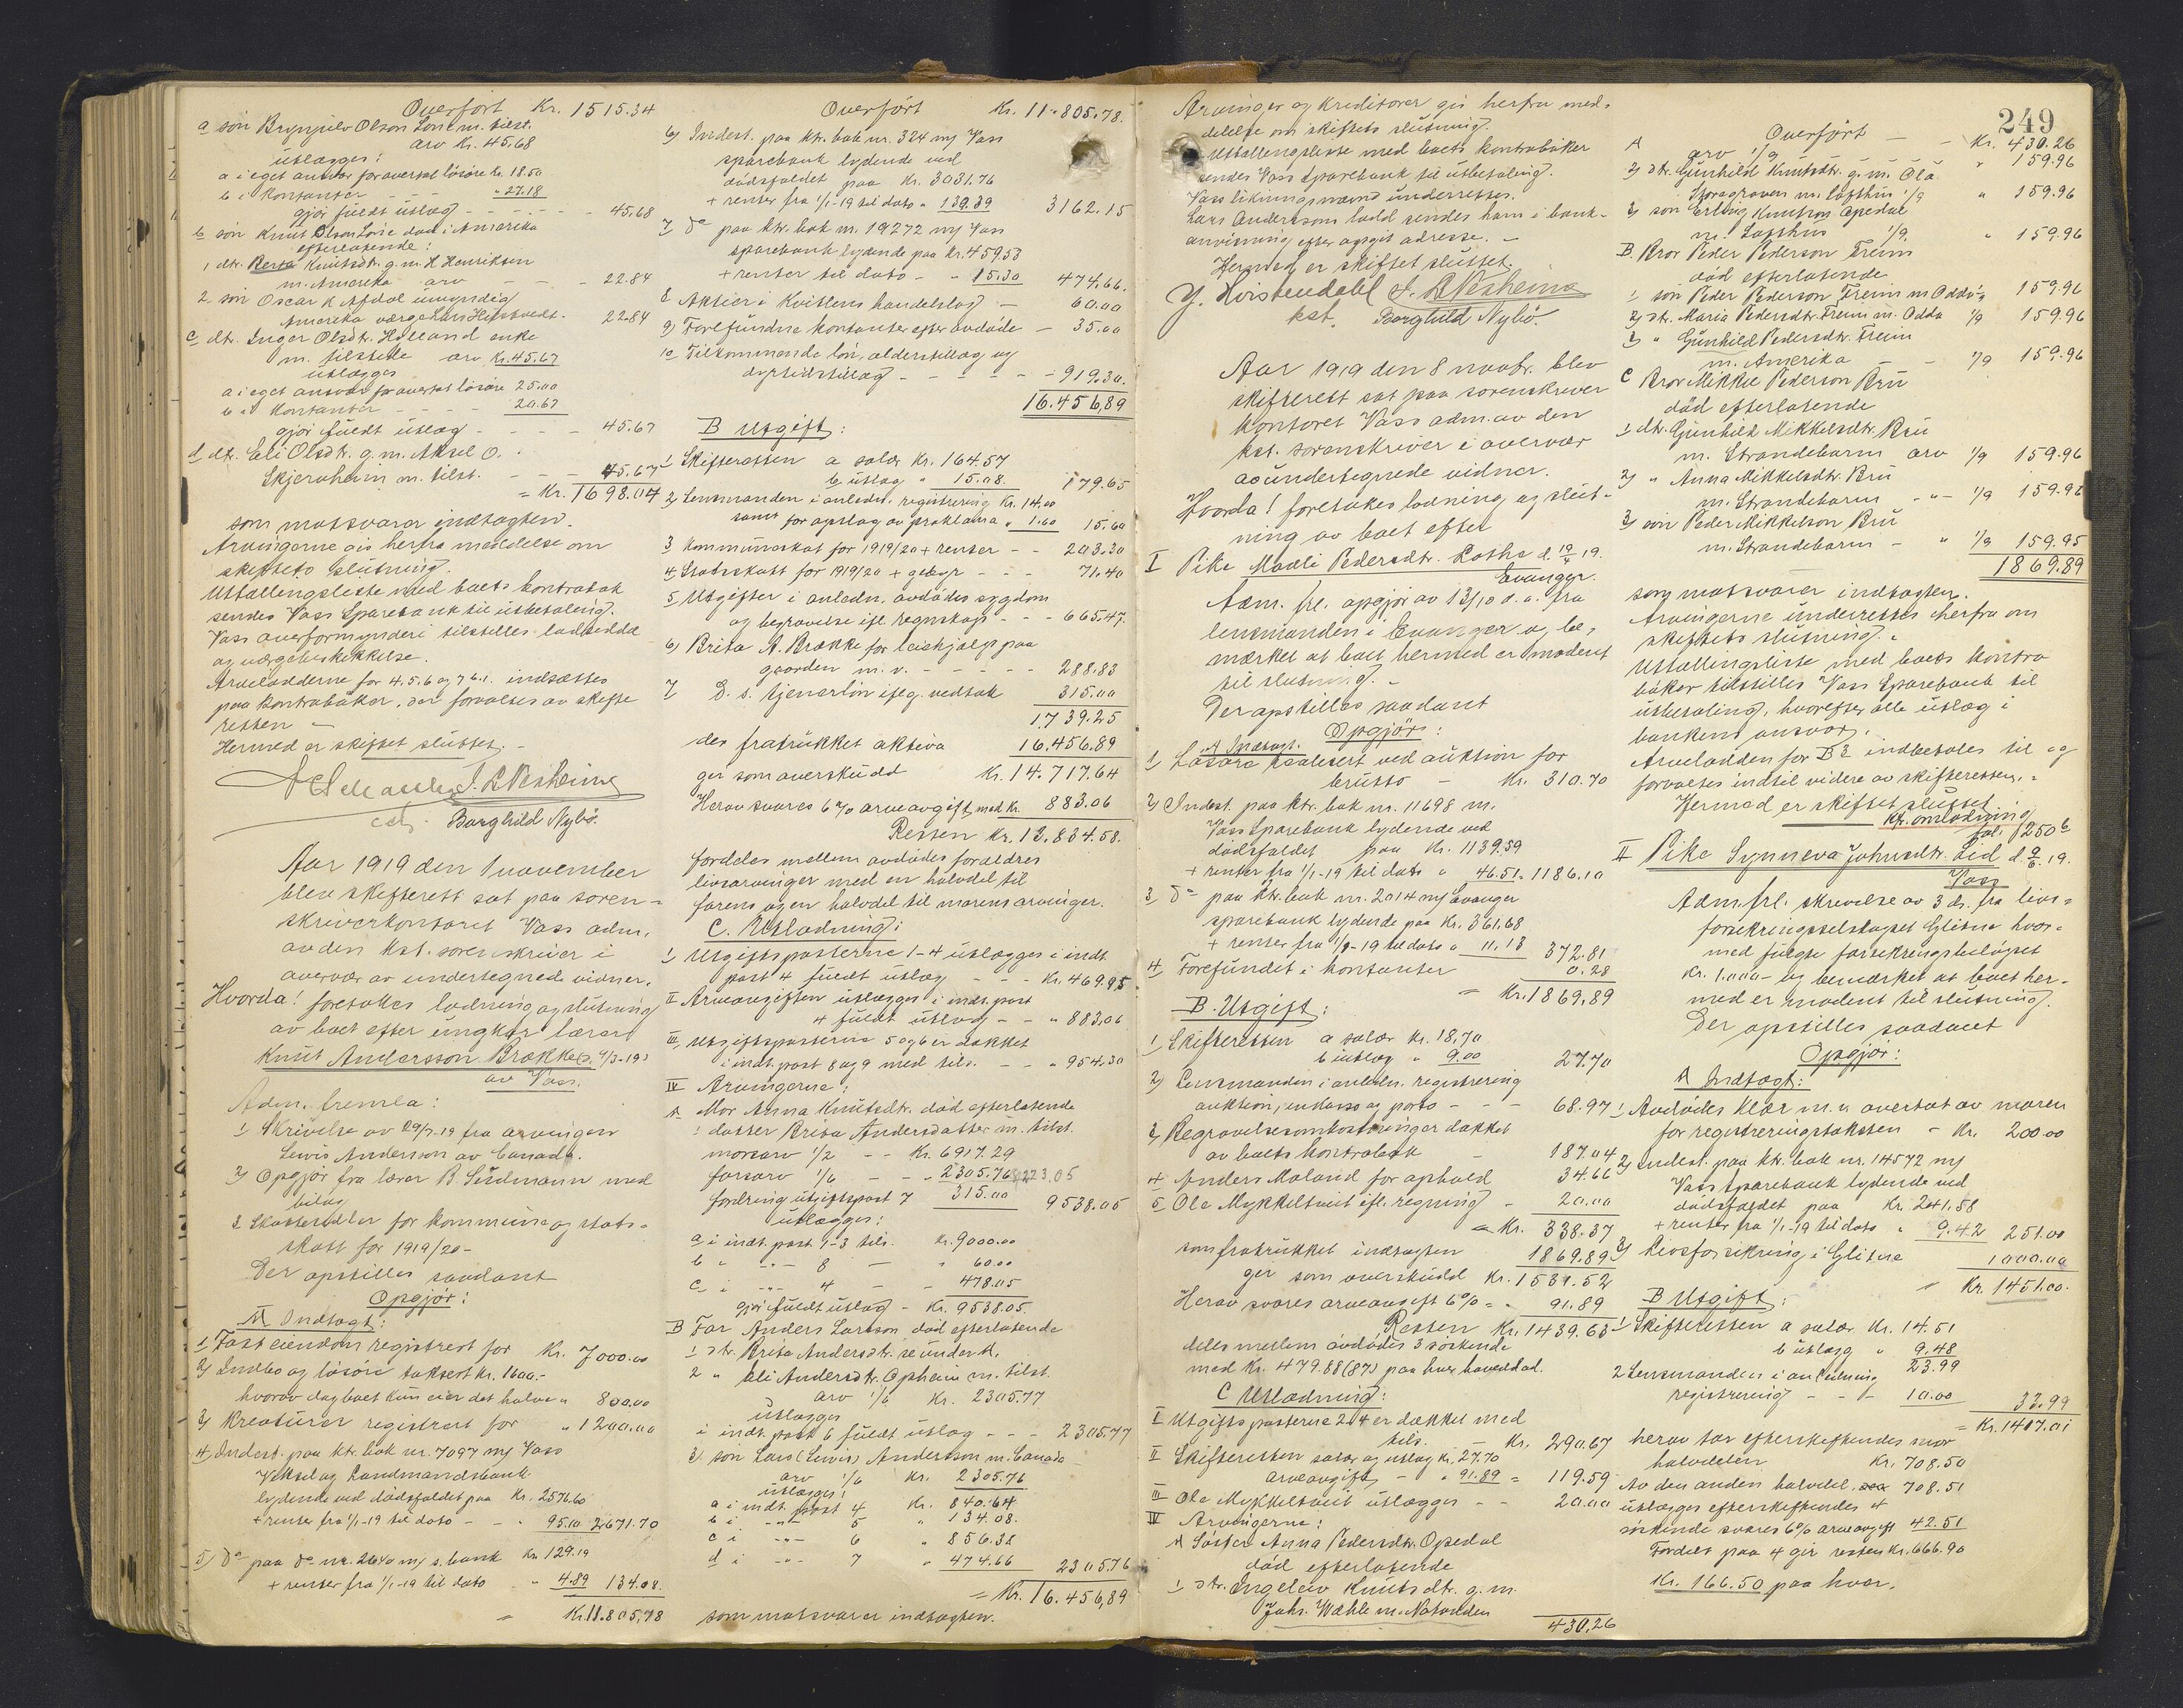 Overfört Kr. 1515.34
a son Brynjulv Olson Lone m. tilst.
arv Kr. 45.68
utlægges:
a i eget ansvar for overtat lösöre Kr. 18.50
b i Kontanter - - " 27.18
gjör fuldt utlæg - - - - - - 45.68
b son Knut Olson Lone död i Amerika
efterlatende:
1 dtr. Berta Knutsdtr. g. m. H Henriksen
m. Amerika arv - - - 22.84
2 son Oscar K Afdal umyndig
Amerika værge Lars Hefstvedt. 22.84
c dtr. Inger Olsdtr. Helland enke
m. tilstede arv Kr. 45.67
utlægges
a i eget ansvar for overtat lösöre 25.00
b i Kontanter - - - - 20.67
gjör fuldt utlæg - - - - 45.67
d dtr. Eli Olsdtr. g. m. Aksel O.
Skjerveheim m. tilst. - - - 45.67
= Kr. 1698.04
som motsvarer indtægten.
Arvingerne gis herfra meddelelse om
skiftets slutning.
Utlællingsliste med boets kontrabok
sendes Vass Sparebank til utbetaling.
Vass overformynderi tilstilles lodseddel
og værgebeskikkelse.
Arvelodderne for 4. 5. 6 og 7 b. 1. indsættes
paa kontrabøker, der forvaltes av skifte
retten -
Hermed er skiftet sluttet. -
J. R Nesheim
cst. Borghild Nybö.
Aar 1919 den 1 november
blev skifterett sat paa soren-
skriverkontoret Vass adm.
av den kst. sorenskriver i
overvær av undertegnede vidner.
Hvorda! foretokes lodning og slutning
av boet efter ungkar lærer
Knut Andersson Brække (d. 4/3-19)
av Vass.
Adm. fremla:
1 Skrivelse av 29/7-19 fra arvingen
Lewis Anderson av Canada.
2) Opgjör fra lærer B. Sundmann med
bilag
3 Skattesedler for kommune og stats-
skatt for 1919/20-
Der opstilles saadant
Opgjör:
A Indtægt:
1 Fast eiendom registrert for Kr. 7000.00
2) Indbo og lösöre taksert Kr. 1600.-
hvorav dagboet kun eier det halve " 800.00
3) Kreaturer registrert for " 1200.00
4) Indest. paa ktr. bok nr. 7097 m/ Vass
Veksel og Landmandsbank
lydende ved dödsfaldet paa Kr. 2576.60
+ renter fra 1/1-19 til dato - - " 95.10 2671.70
5) do paa do nr. 2640 m/ s. bank Kr. 129.19
+ renter fra 1/1-19 til dato " 4.89 134.08
= Kr. 11.805,78
Overfört Kr. 11.805.78.
6) Indest. paa ktr. bok nr. 324 m/ Vass
sparebank lydende ved
dödsfaldet paa Kr. 3031.76
+ renter fra 1/1-19 til dato " 130.39 3162.15
7 do paa ktr. bok nr. 19272 m/ Vass
sparebank lydende paa Kr. 459.53
+ renter til dato - " 15.30 474.66.
8 Aktier i Kvitlens handelslag - 60.00
9) Forefundne kontanter efter avdöde - 35.00
10 Tilkommende lön, alderstillæg og
dyrtidstillæg - - - - - 919.30.
16.456,89
B Utgift:
1 Skifteretten a salær Kr. 164.57
b utlæg " 15.08. 179.65
2) Lensmanden i anledn. registrering Kr. 14.00
samt for opslag av proklama " 1.60 15.60
3 Kommuneskat for 1919/20 + renter - - 203.30
4 Statsskatt for 1919/20 + gebyr - - - 71.40
5 Utgifter i anledn. avdödes sygdom
og begravelse ifl. regnskap - - - 665.47.
6) Brita A. Brække for leiehjælp paa
gaarden m. v. - - - - - 288.83
7 D. s. tjenerlön iflg. vedtak 315.00
1739.25
der fratrukket aktiva 16.456.89
gir som overskudd Kr. 14.717.64
Herav svares 6% arveavgift med Kr. 883.06
Resten Kr. 13.834.58.
fordeles mellem avdödes forældres
livsarvinger med en halvdel til
farens og en halvdel til morens arvinger.
C. Utlodning:
I Utgiftsposterne 1-4 utlægges i indt
post 4 fuldt utlæg - - - Kr. 469.95
II Arveavgiften utlægges i indt. post
4 fuldt utlæg - - " 883.06
III Utgiftsposterne 5 og 6 er dækket
i indt. post 8 og 9 med tils. - - " 954.30
IV Arvingerne:
A Mor Anna Knutsdtr. död efterlatende
1 datter Brita Andersdatter m. tilst.
morsarv 1/2 - - Kr. 6917.29
farsarv 1/6 - - " 2305.76 9223.05
fordring utgiftspost 7 315.00 9538.05
utlægges:
a i indt. post 1-3 tils. Kr. 9000.00
b " -"- 8 - " 60.00
c i -"- 4 - - 478.05
gjör fuldt utlæg - Kr. 9538.05.
B Far Anders Larsson död efterlatende
1 dtr. Brita Andersdtr. se under A.
2 " Eli Andersdtr. Opheim m. tilst.
arv 1/6 Kr. 2305.77
utlægges
i indt. post 6 fuldt utlæg - - - 2305.77
3) son Lars (Lewis) Andersson m. Canada
arv 1/6 Kr. 2305.76
utlægges:
a i indt. post 4 Kr. 840.64
b i -"- 5 " 134.08.
c i -"- 6 " 856.38
d i -"- 7 " 474.66 2305.76
= Kr. 16.456,89
som motsvarer indtægten.
Arvinger og kreditorer gis herfra med-
delelse om skiftets slutning.
Utlællingsliste med boets kontrabøker
sendes Vass Sparebank til utbetaling.
Vass likningsnævnd underrettes.
Lars Anderssons lodd sendes ham i bank-
anvisning efter opgit adresse. -
Hermed er skiftet sluttet.
Y. Hvistendahl J. R Nesheim
kst. Borghild Nybö.
Aar 1919 den 8 novbr. blev
skifterett sat paa sorenskriver
kontoret Vass adm. av den
kst. sorenskriver i overvær
av undertegnede vidner.
Hvorda! foretokes lodning og slut-
ning av boet efter
I Pike Madli Pedersdtr. Rothe d. 19/4 19.
Evanger.
Adm. frl. opgjör av 13/10 d. a. fra
lensmanden i Evanger og be-
mærket at boet hermed er modent
til slutning. -
Der opstilles saadant
Opgjör:
A Indtægt.
1) Lösöre realisert ved auktion for
brutto - Kr. 310.70
2) Indest. paa ktr. bok nr. 11698 m.
Vass Sparebank lydende ved
dödsfaldet paa Kr. 1139.59
+ renter fra 1/1-19 til dato " 46.51. 1186.10
3 do paa ktr. bok nr. 2014 m/ Evanger
sparebank lydende paa Kr. 361.68
+ renter fra 1/1-19 til dato " 11.13 372.81
4 Forefundet i kontanter 0.28
= Kr. 1869,89
B. Utgift:
1 Skifteretten a salær Kr. 18.70
b utlæg " 9.00 27.70
2) Lensmanden i anledn. registrering
auktion, inkasso og porto - - - 68.97
3) Begravelsesomkostninger dækket
av boets kontrabok - 187.04
4 Anders Moland for ophold 34.66
5 Ole Mykkeltveit ifl. regning - 20.00
= Kr. 338.37
som fratrukket indtægten 1869.89
gir som overskudd Kr. 1531.52
Herav svares arveavgift 6% = " 91.89
Resten Kr. 1439.63
deles mellem avdödes 3 söskende
med Kr. 479.88 (87) paa hver hovedlod.
C Utlodning:
I Utgiftsposterne 2-4 er dækket med
tils. - Kr. 290.67
II Skifteretten salær og utlæg Kr. 27.70
arveavgift - " 91.89 = 119.59
III Ole Mykkeltveit utlægges - - 20.00
IV Arvingerne:
A Söster Anna Pedersdtr. Opedal
död efterlatende
1 dtr. Ingeleiv Knutsdtr. g. m.
Johs. Wæhle m. Notodden
430,26
249
Overfört - - Kr. 430.26
A arv 1/9 " 159.96
2) dtr. Gunhild Knutsdtr. g. m. Ola
Storegraven m. Lofthus 1/9 " 159.96
3) son Erling Knutson Opedal
m. Lofthus 1/9. " 159.96
B. Bror Peder Pederson Freim
död efterlatende
1 son Peder Pederson Freim m Odda 1/9 159.96
2) dtr. Maria Pedersdtr. Freim m. Odda 1/9 159.96
3) " Gunhild Pedersdtr. Freim
m. Amerika - - 1/9 159.96
C Bror Mikkel Pederson Bru
död efterlatende
1 dtr. Gunhild Mikkelsdtr. Bru
m. Strandebarm arv 1/9 159.96
2) " Anna Mikkelsdtr. Bru
m. Strandebarm - "- 1/9 159.96
3) son Peder Mikkelson Bru
m. Strandebarm - " 1/9 159.95
1869.89
som motsvarer indtægten.
Arvingerne underrettes herfra om
skiftets slutning.
Utlællingsliste med boets kontra
bøker tilstilles Vass Sparebank til
utbetaling, hvorefter alle utlæg i
bankens ansvar.
Arvelodden for B3 indbetales til og
forvaltes indtil videre av skifteretten. -
Hermed er skiftet sluttet.
Kfr. omlodning
fol. 250 b
II Pike Synneva Johnsdtr. Lid d. 9/6. 19.
Vass
Adm. frl. skrivelse av 3 ds. fra livs-
forsikringsselskapet Glitne hvor-
med fulgte forsikringsbelöpet
Kr. 1.000.- og bemærket at boet her-
med er modent til slutning.
Der opstilles saadant
Opgjör:
A Indtægt:
1 Avdödes klær m. v. overtat av moren
for registreringstaksten - Kr. 200.00
2) Indest. paa ktr. bok nr. 14572 m/
Vass Sparebank lydende ved
dödsfaldet paa Kr. 241.58
+ renter fra 1/1-19 til dato " 9.42 251.00
3) Livsforsikring i Glitne 1000.00
= Kr. 1451.00.
B Utgift:
1 Skifteretten a salær Kr. 14.51
b utlæg " 9.48
23.99
2 Lensmanden i anledning
registrering - - - 10.00 33.99
= Kr. 1417.01
herav tar efterskeftendes mor
halvdelen Kr. 708.50
Av den anden halvdel, 708.51
utlægges efterskeftendes 4
söskende svares 6% arveavgift 42.51
Fordelt paa 4 gir resten Kr. 666.90
Kr. 166.50 paa hver.